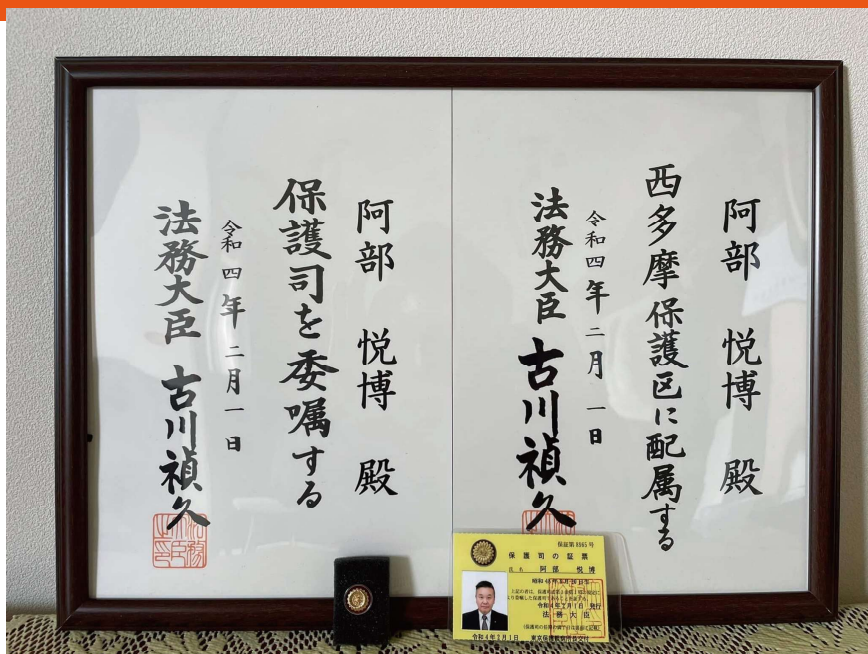 阿部 悦博 殿
西多摩保護区に配属する
令和四年二月一日
法務大臣 古川禎久
阿部 悦博 殿
保護司を委嘱する
令和四年二月一日
法務大臣 古川禎久
法務大臣之印
保護司の証票
氏名 阿部 悦博
令和4年2月1日 発行
法務大臣
令和4年2月1日